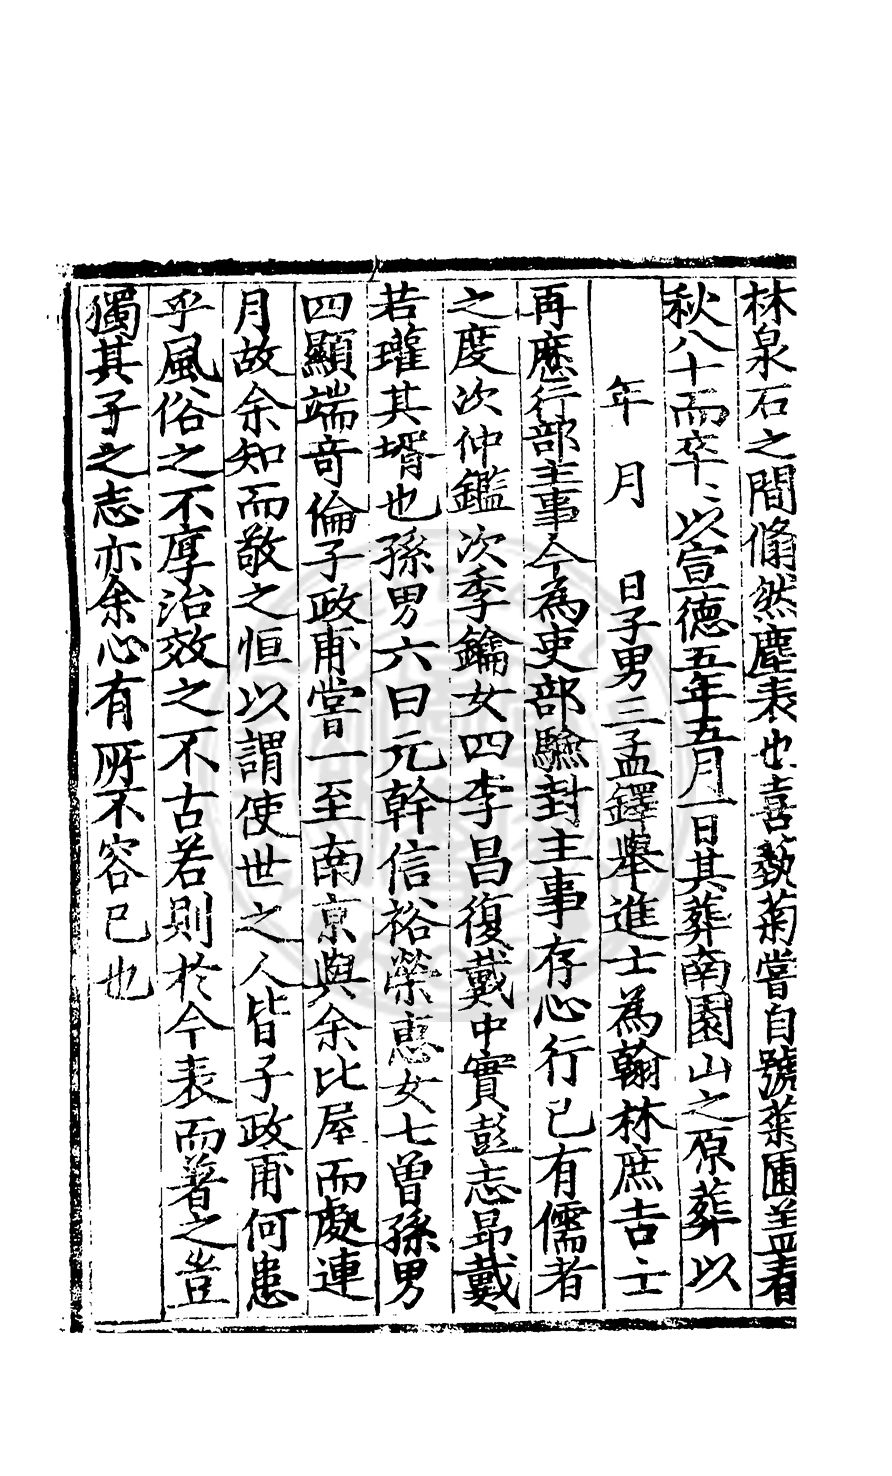 林泉石之間翛然塵表也喜蓺菊嘗自號菜圃盖春
秋八十而卒〻以宣德五年五月一日其葬南園山之原葬以
年　月　日子男三孟鐸舉進士為翰林庶吉士
再歷行部主事今為吏部驗封主事存心行已有儒者
之度次仲鑑次季鑰女四李昌復戴中實彭志昻戴
若瓘其壻也孫男六曰元幹信裕榮惠女七曽孫男
四顯端竒倫子政甫嘗一至南京與余比屋而處連
月故余知而敬之恒以謂使世之人皆子政甫何患
乎風俗之不厚治效之不古若則於今表而著之豈
獨其子之志亦余心有所不容已也